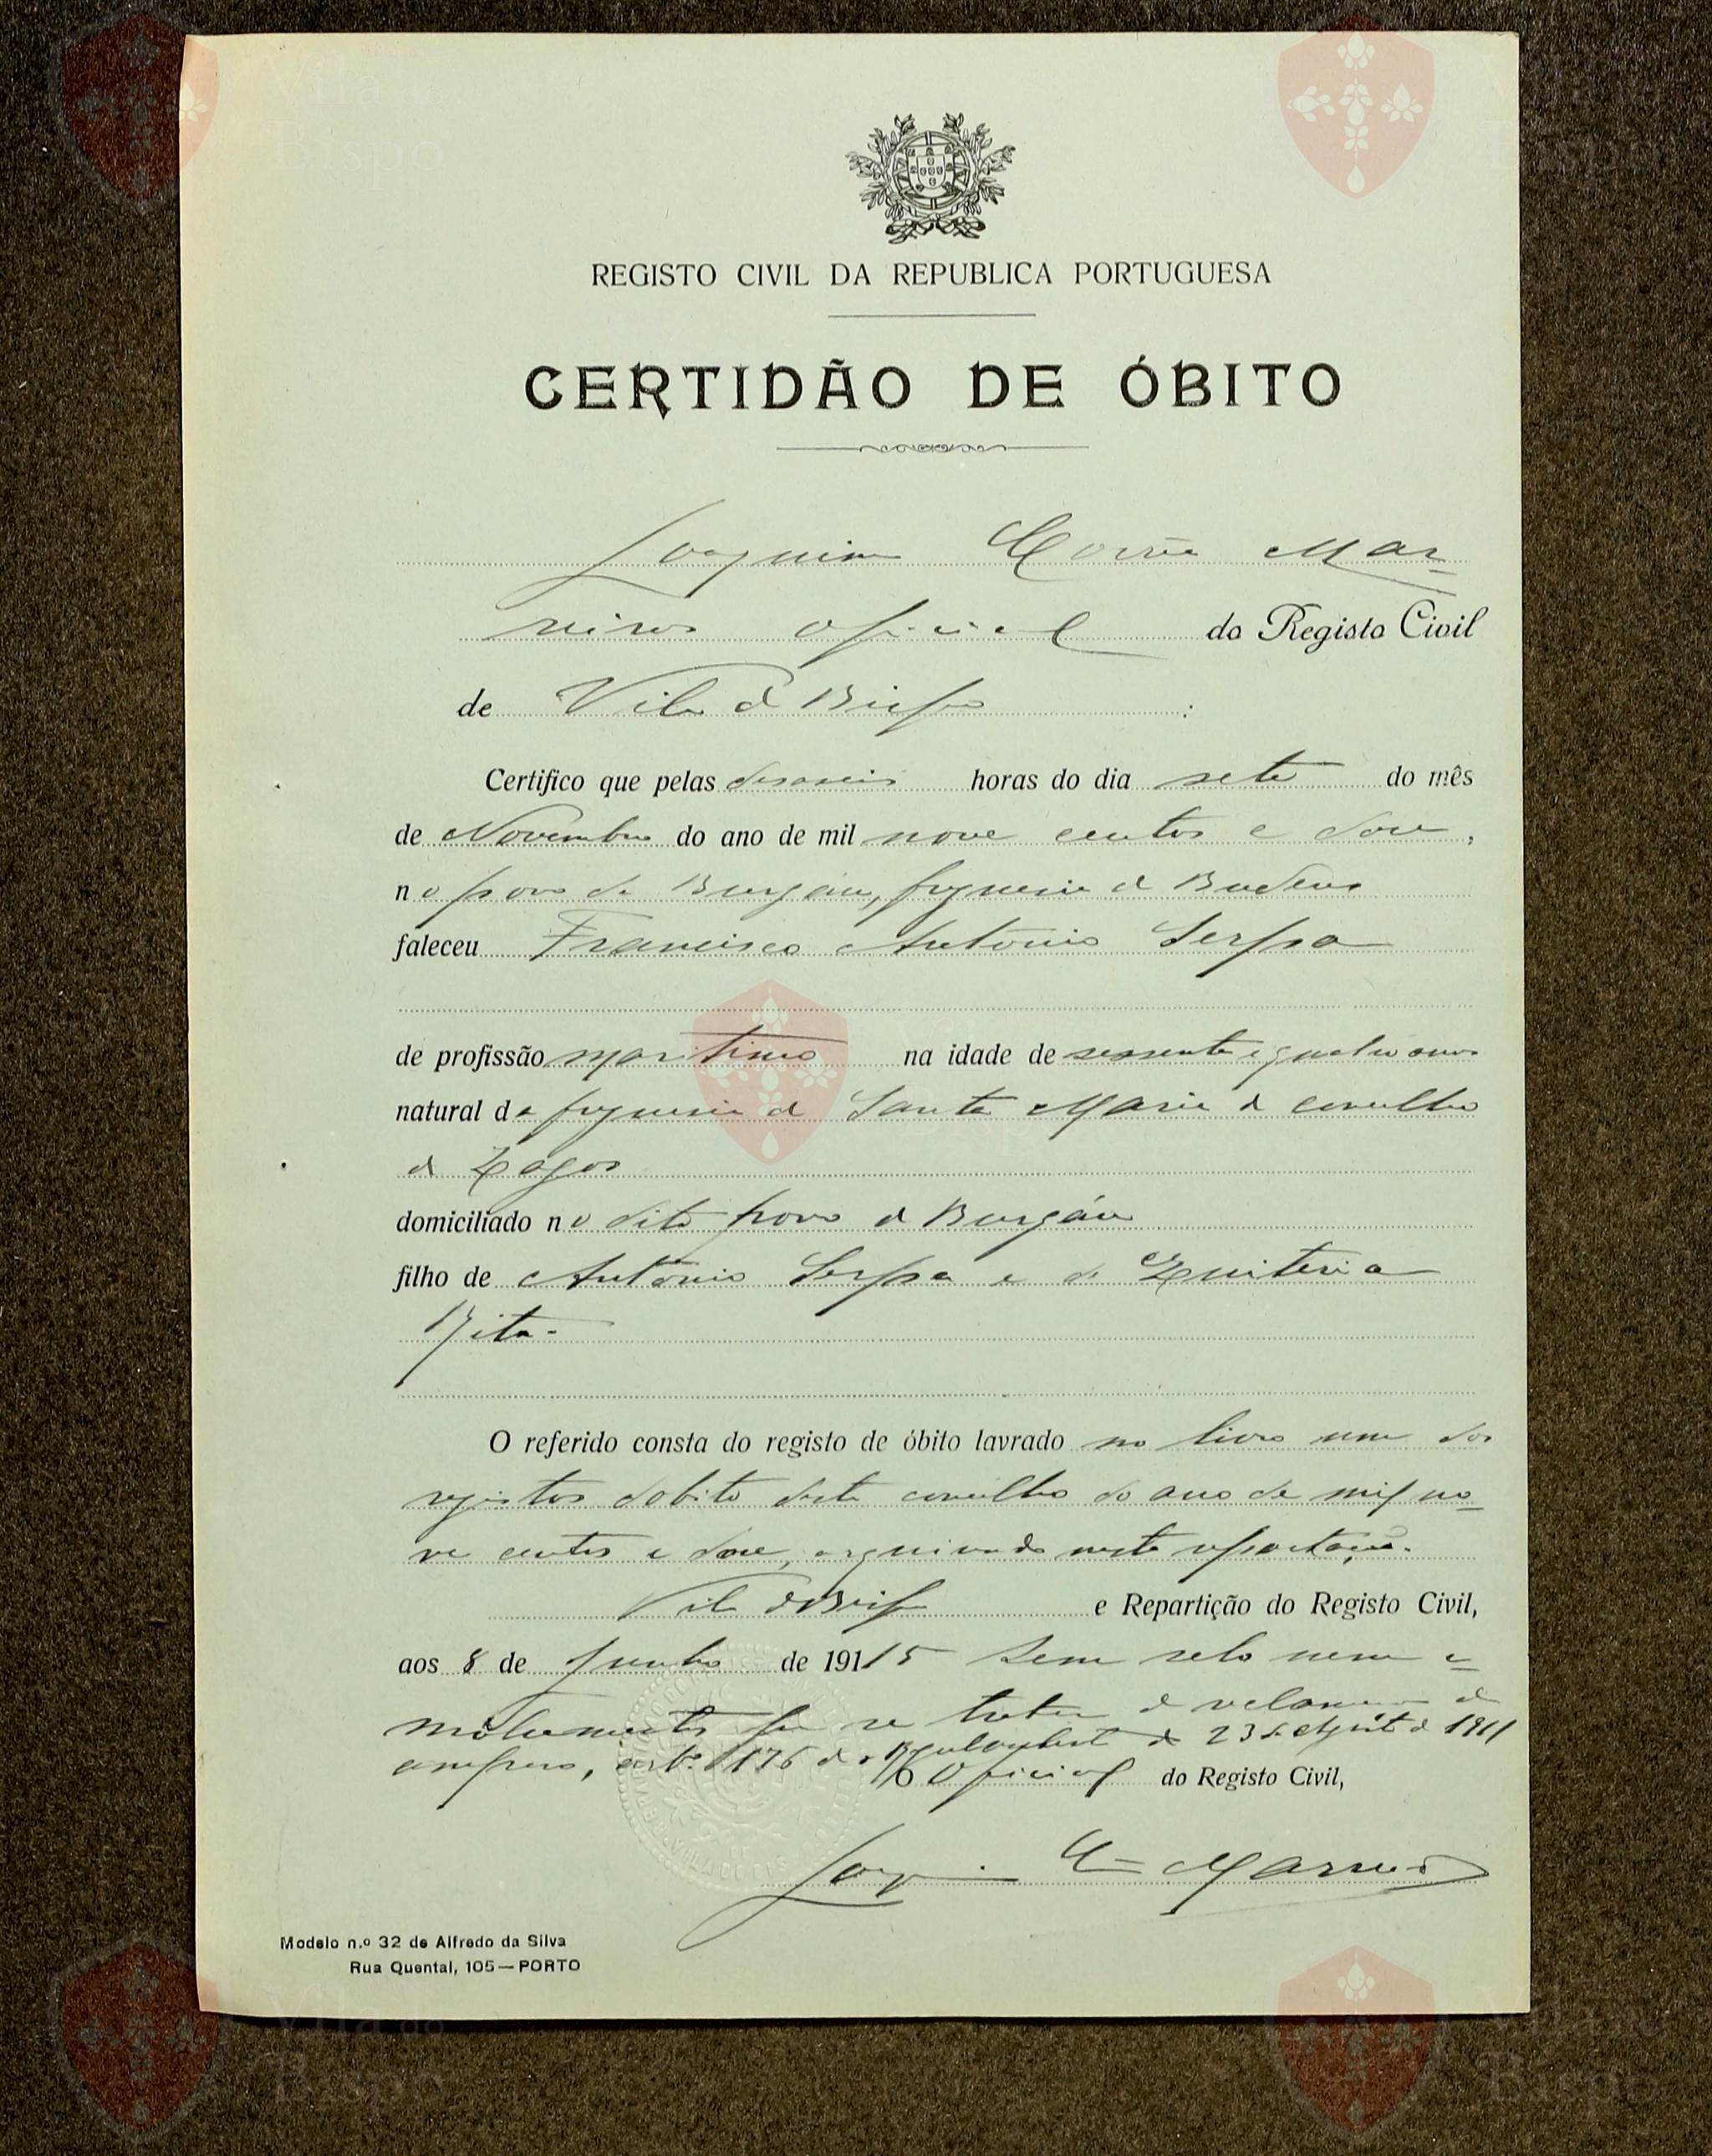 Vila do
Bispo
REGISTO CIVIL DA REPUBLICA PORTUGUESA
CERTIDÃO DE ÓBITO
Joaquim Mar-
reiros oficial do Registo Civil
de Vila d Bispo :
Certifico que pelas desaseis horas do dia sete do mês
de Novembro do ano de mil nove centos e doze,
no povo de Burgáu, freguesia d Budens
faleceu Francisco António Serpa
de profissão maritimo na idade de sessenta e quatro anos
natural da freguesia d Santa Maria d concelho
d Lagos
domiciliado no dito povo d Burgáu
filho de António Serpa e de Quiteria
Rita.
O referido consta do registo de óbito lavrado no livro um dos
registos dobito deste concelho do ano de mil no-
ve centos e doze, arquivado nesta repartação.
Vila dBispo e Repartição do Registo Civil,
aos 8 de Junho de 19115 Sem selo nem e-
molumentos por se tratar d de
 176 do de 23 d 1911
O Oficial do Registo Civil,
Joaquim Marreiros
Modelo n.º 32 de Alfredo da Silva
Rua Quental, 105—PORTO
Vila do
Bispo